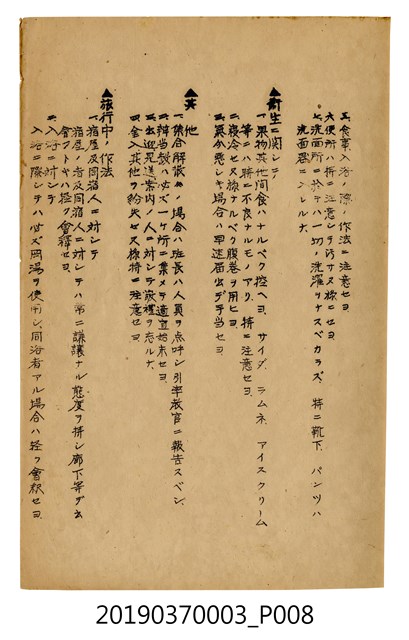 五、食事入浴ノ際ノ作法ニ注意セヨ
六、便所ハ特ニ注意シテ汚サヌ様ニセヨ
七、洗面所ニ於テハ一切ノ洗濯ヲナスベカラズ、特ニ靴下、パンツハ
洗面器ニ入レルナ
▲衛生ニ関シテ
一、果物其他間食ハナルベク控ヘヨ、サイダ、ラムネ、アイスクリーム
等ニハ特ニ不良ナルモノアリ、特ニ注意セヨ
二、寝冷セヌ様ナルベク腹巻ヲ用ヒヨ
三、気分悪シキ場合ハ早速届出デ手当セヨ
▲其他
一、集合解散ノ場合ハ班長ハ人員ヲ点呼シ引率教官ニ報告スベシ
二、辨当殻ハ必ズ一ケ所ニ集メテ適宜始末セヨ
三、出迎見送案内ノ人ニ対シテ敬禮ヲ忘ルナ
四、金入其他ヲ紛失セヌ様特ニ注意セヨ
▲旅行中ノ作法
一、宿屋及同宿人ニ対シテ
宿屋ノ者及同宿人ニ対シテハ常ニ謙譲ナル態度ヲ持シ廊下等デ出
會フトキハ軽ク會釋セヨ
二、入浴ニ対シテ
入浴ニ際シテハ必ズ岡湯ヲ使用シ、同浴者アル場合ハ軽ク會釈セヨ
20190370003_P008